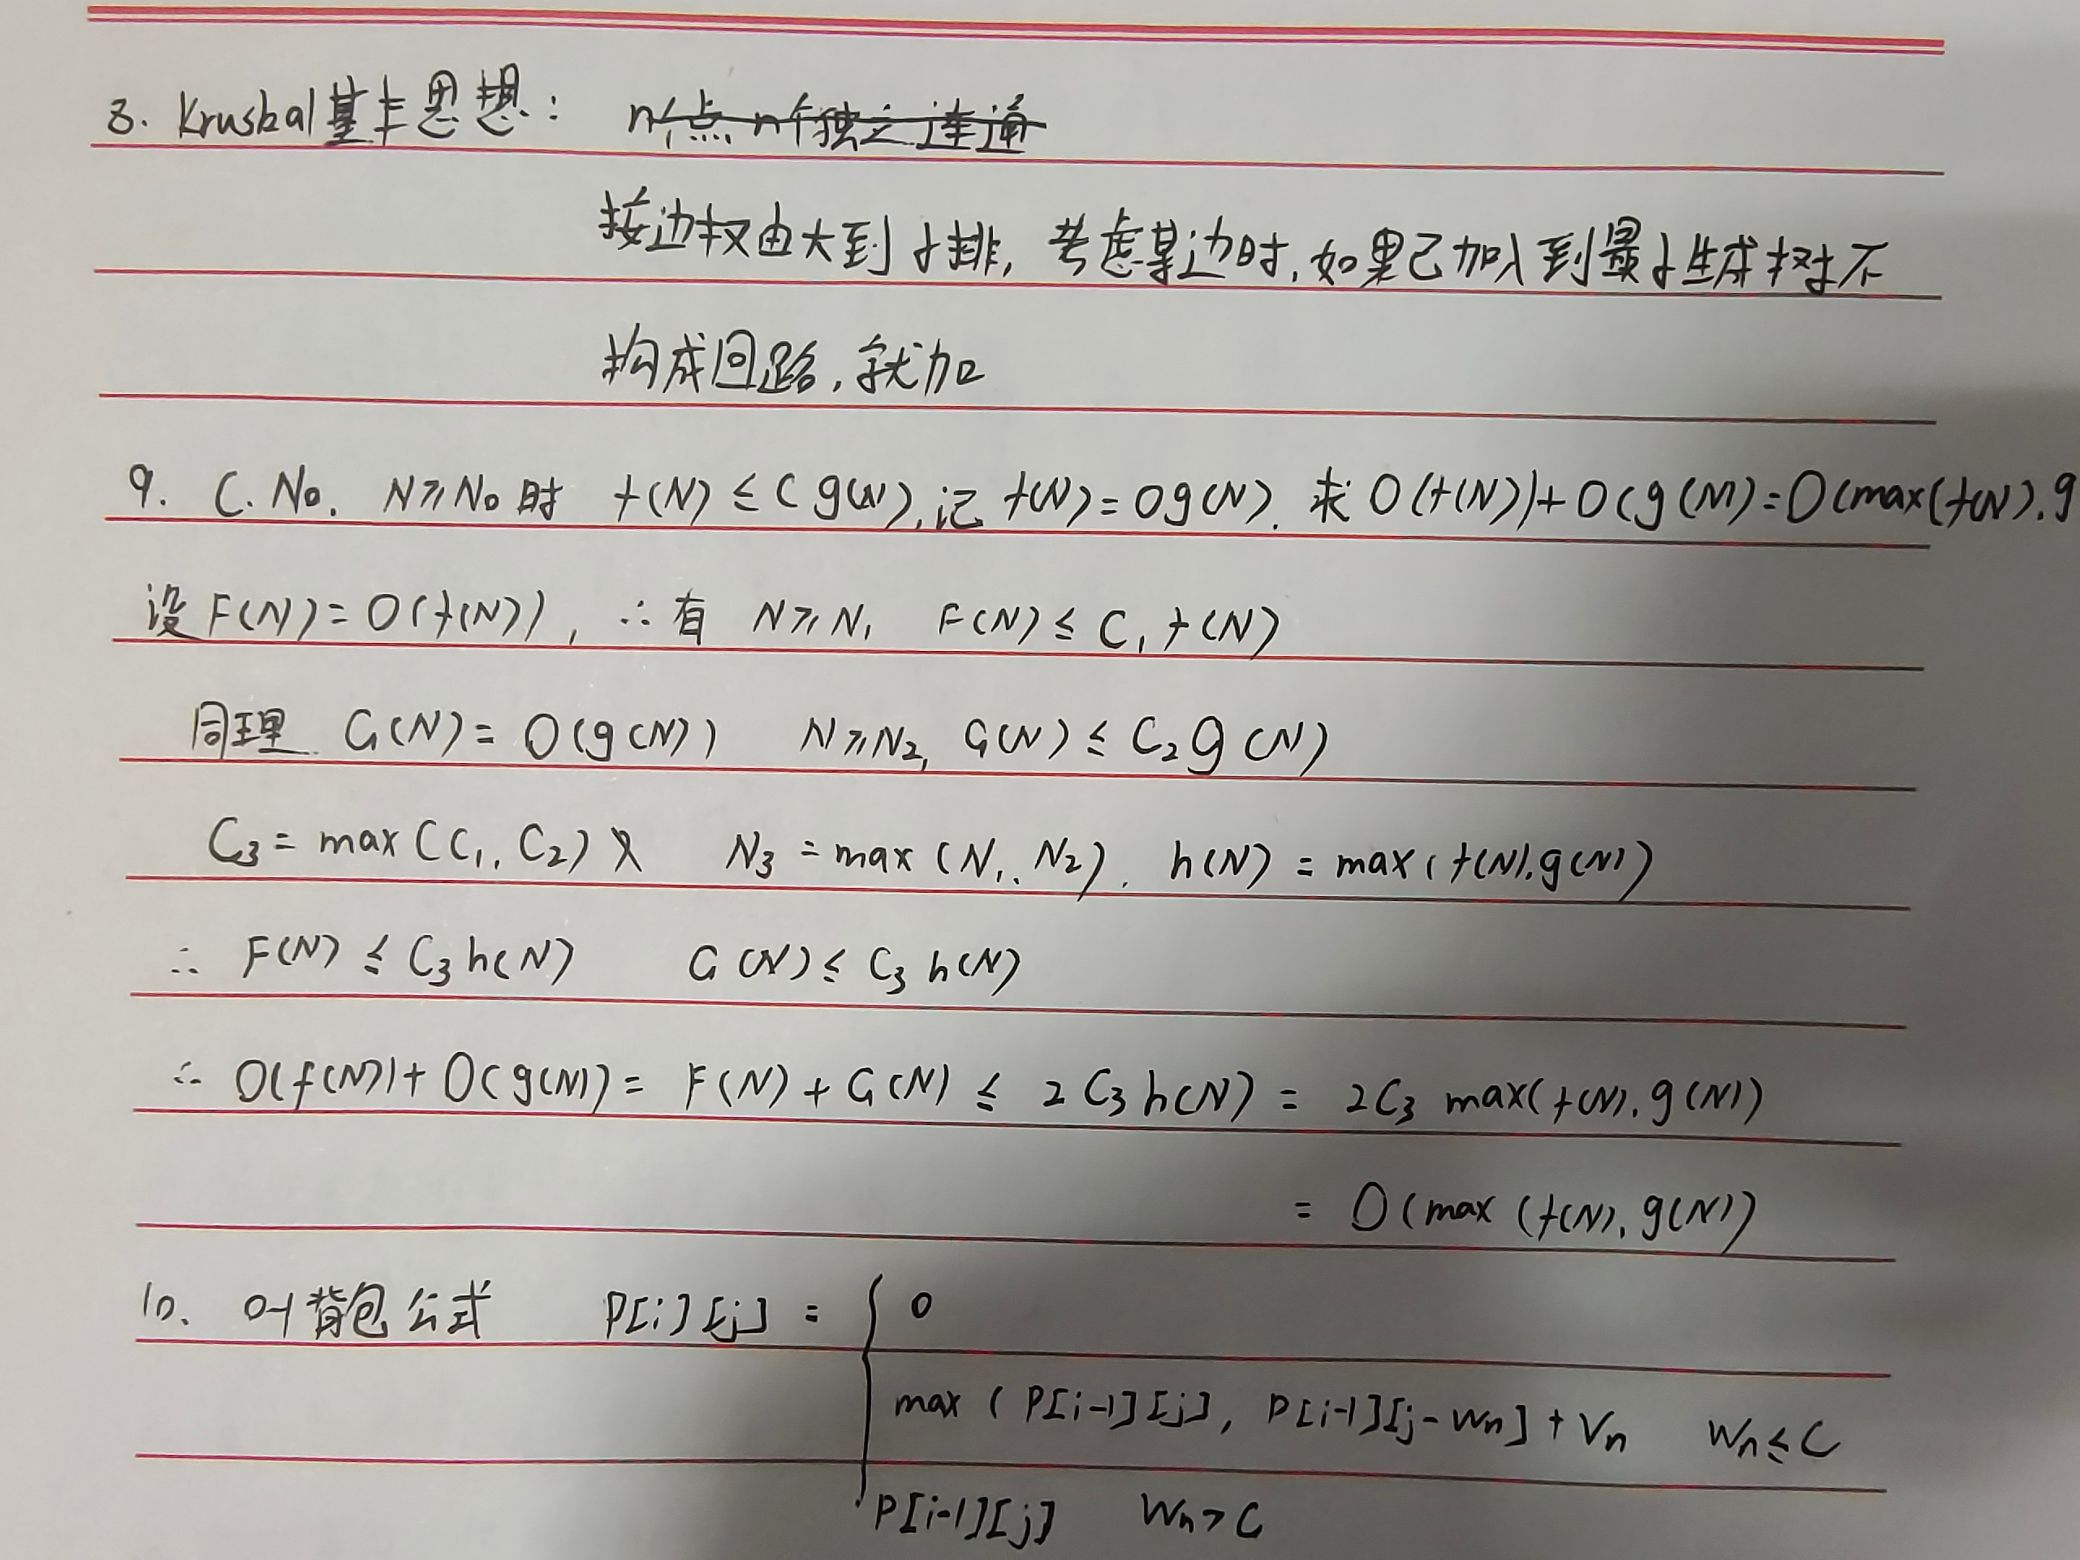 8. Kruskal基本思想： n个点 n个独立连通
按边权由大到小排, 考虑某边时, 如果已加入到最小生成树不
构成回路, 就加
9. C. N₀. N≥N₀时 f(N) ≤ C g(N), 记 f(N)=Og(N). 求 O(f(N))+O(g(N)=O(max(f(N).g
设F(N)=O(f(N)), ∴有 N≥N₁ F(N)≤ C₁f(N)
同理 G(N)= O(g(N)) N≥N₂, G(N) ≤ C₂g(N)
C₃= max(C₁, C₂) N₃=max(N₁. N₂). h(N)=max(f(N).g(N))
∴ F(N) ≤ C₃h(N) G(N)≤ C₃ h(N)
∴ O(f(N))+O(g(N))= F(N)+G(N) ≤ 2C₃h(N)= 2C₃ max(f(N). g(N))
= O(max (f(N), g(N))
10. 0-1背包公式 P[i][j] = { 0
max ( P[i-1][j], P[i-1][j-Wn]+Vn Wn≤C
P[i-1][j] Wn>C